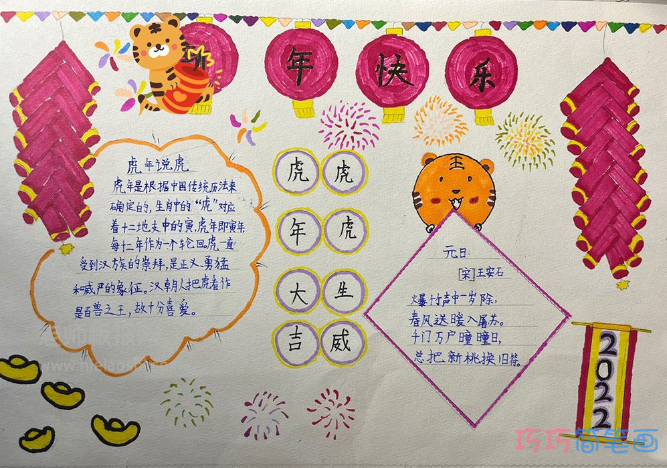 年 快 乐
虎年说虎
虎年是根据中国传统历法来
确定的,生肖中的“虎”对应
着十二地支中的寅,虎年即寅年
每十二年作为一个轮回。虎一直
受到汉方族的崇拜,是正义、勇猛
和威严的象征。汉朝人把虎看作
是百兽之王,故十分喜爱。
虎 虎
年 虎
大 生
吉 威
王
元日
[宋]王安石
爆竹声中一岁除,
春风送暖入屠苏。
千门万户曈曈日,
总把新桃换旧符。
2022
巧巧简笔画